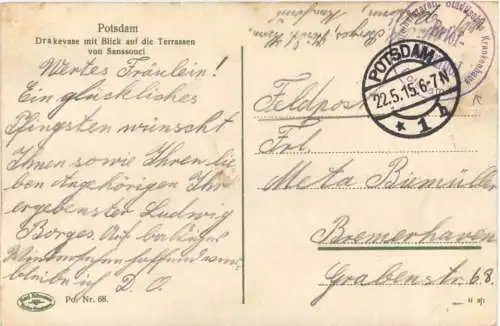 Potsdam
Drakevase mit Blick auf die Terrassen
von Sanssouci
Wertes Fräulein!
Ein glückliches
Pfingsten wünscht
Ihnen sowie Ihren lie
ben Angehörigen Ihr
ergebenster Ludwig
Borges. Auf baldiges
bleibe ich D. O.
Pot Nr. 68.
POTSDAM
22.5.15.6-7N
* 1 h
Krankenhaus
Feldpost
Frl.
Meta Biemüller
Bremerhaven
Grabenstr. 68.